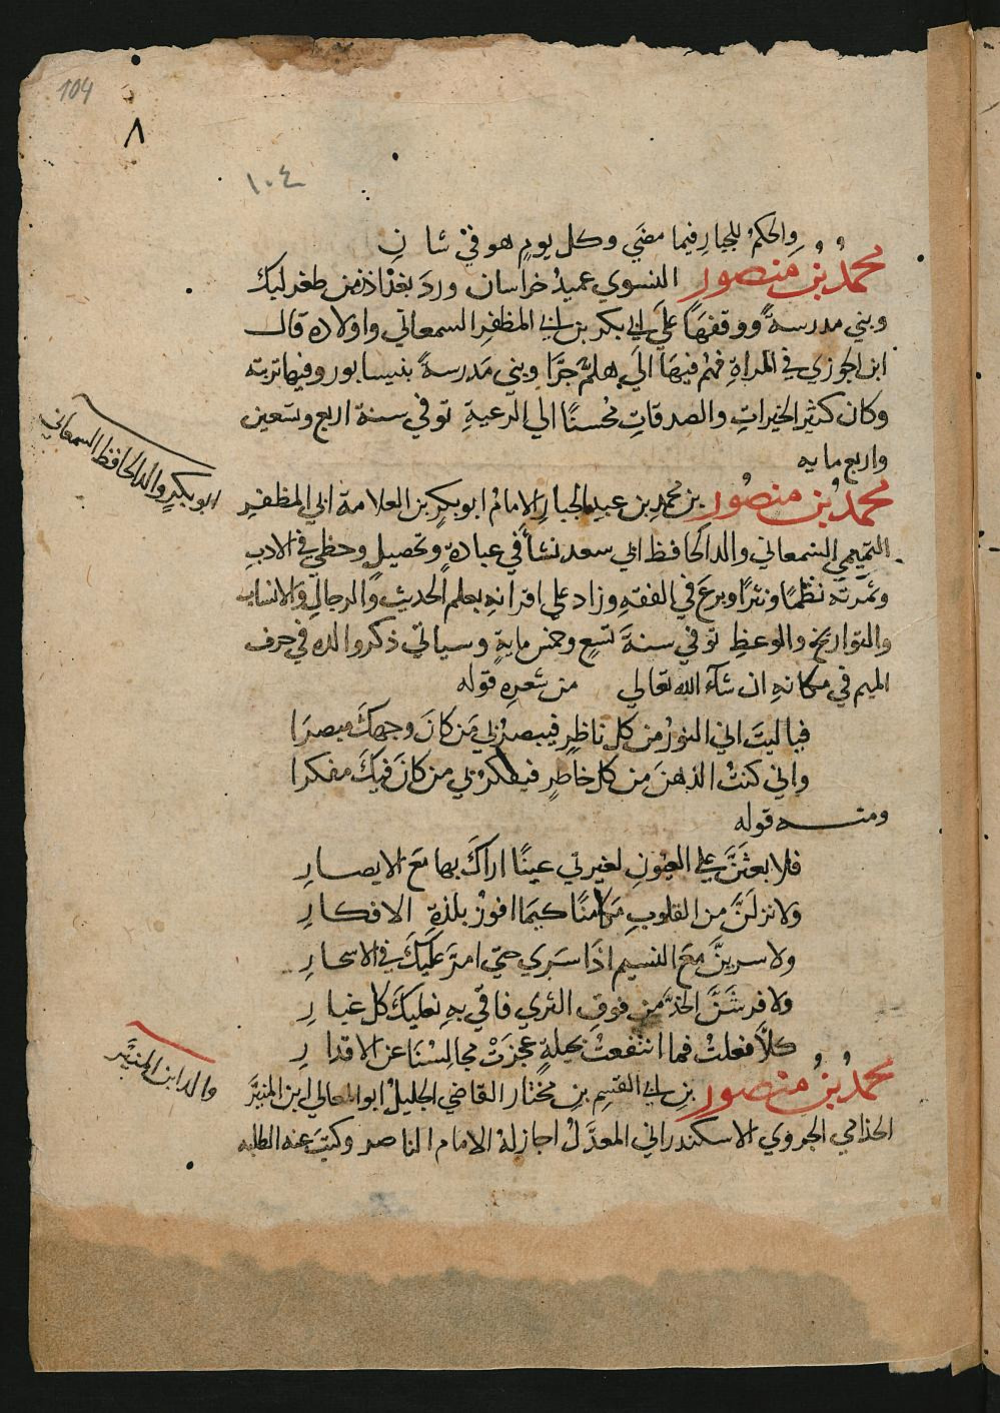 104
٨
١٠٤
والحكم للجبار فيما مضي وكل يوم هو في شان
محمد بن منصور النسوي عميد خراسان ورد بغداذ زمن طغرلبك
وبني مدرسة ووقفها علي ابي بكر بن ابي المظفر السمعاني واولاده قال
ابن الجوزي في المراة فهم فيها الي هلم جرا وبني مدرسة بنيسابور وفيها تربته
وكان كثير الخيرات والصدقات محسنا الي الرعية توفي سنة اربع وتسعين
واربع مايه
محمد بن منصور بن محمد بن عبد الجبار الامام ابو بكر بن العلامة ابي المظفر
التميمي السمعاني والد الحافظ ابي سعد نشأ في عبادة وتحصيل وحظي في الادب
وثمرته نظما ونثرا وبرع في الفقه وزاد علي اقرانه بعلم الحديث والرجال والانساب
والتواريخ والوعظ توفي سنة تسع وخمس ماية وسياتي ذكر والده في حرف
الميم في مكانه ان شآء الله تعالي من شعره قوله
فيا ليت اني النور من كل ناظر فيبصر بي من كان وجهك مبصرا
واني كنت الذهن من كل خاطر فيفكر بي من كان فيك مفكرا
ومنه قوله
فلابعثن علي العيون لغيرتي عينا اراك بها مع الابصار
ولانزلن من القلوب مكامنا كيما افوز بلذة الافكار
ولاسرين مع النسيم اذا سري حتي امر عليك في الاسحار
ولافرشن الخد من فوق الثري فاقي به نعليك كل غبار
كلا فعلت فما انتفعت بحيلة عجزت مجالسنا عن الاقدار
محمد بن منصور بن ابي القسم بن مختار القاضي الجليل ابو المعالي ابن المنير
الجذامي الجروي الاسكندراني المعدل اجاز له الامام الناصر وكتب عنه الطلبه
ابو بكر والد الحافظ السمعاني
والد ابن المنير